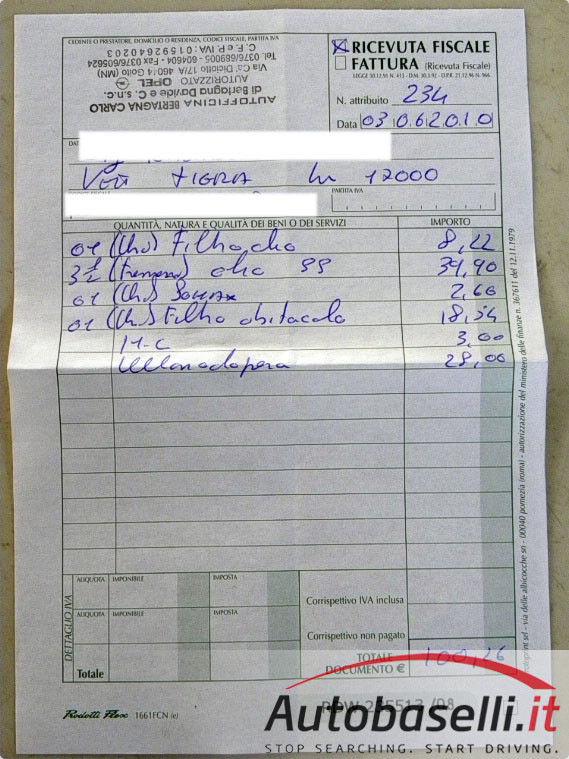 CEDENTE O PRESTATORE, DOMICILIO O RESIDENZA, CODICE FISCALE, PARTITA IVA
AUTOFFICINA BERTAGNA CARLO
di Bertagna Davide e C. s.n.c.
AUTORIZZATO OPEL
Via Ca' Diciotto 17/A - 46044 Goito (MN)
Tel. 0376/689005 - 604604 - Fax 0376/605624
C.F. e P. IVA: 01592640203
X RICEVUTA FISCALE
FATTURA (Ricevuta Fiscale)
LEGGE 30.12.91 N. 413 - D.M. 30.3.92 - D.P.R. 21.12.96 N. 966
N. attribuito 234
Data 03 06 2010
TIGRA km 12000
PARTITA IVA
QUANTITÀ, NATURA E QUALITÀ DEI BENI O DEI SERVIZI IMPORTO
01 Filtro olio 8,22
3 1/2 olio 39,90
01 2,60
01 Filtro abitacolo 18,54
M-C 3,00
Manodopera 28,00
DETTAGLIO IVA
ALIQUOTA IMPONIBILE IMPOSTA
Corrispettivo IVA inclusa
ALIQUOTA IMPONIBILE IMPOSTA
Corrispettivo non pagato
Totale
TOTALE DOCUMENTO € 100,26
Prodotti Flex 1661FCN (e)
via delle albicocche sn - 00040 pomezia (roma) - autorizzazione del ministero delle finanze n. 367611 del 12.11.1979
Autobaselli.it
STOP SEARCHING. START DRIVING.